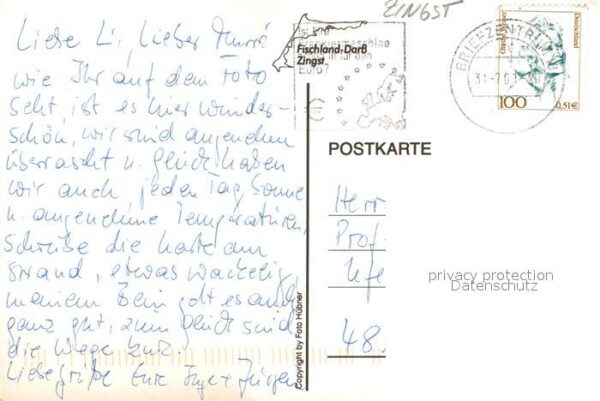 Liebe Li, Lieber
wie Ihr auf dem Foto
seht, ist es hier wunder-
schön, wir sind angenehm
überrascht u. Glück haben
wir auch jeden Tag Sonne
u. angenehme Temperaturen,
schreibe die Karte am
Strand, etwas wackelig,
meinem Bein geht es auch
ganz gut, zum Glück sind
die Wege kurz.
Liebe Grüße Eure Inge + Jürgen
ZINGST
Fischland-Darß
Zingst
€
Copyright by Foto Hübner
BRIEFZENTRUM
Deutschland
100
0,51€
POSTKARTE
Herr
Prof.
Ufe
48
privacy protection
Datenschutz